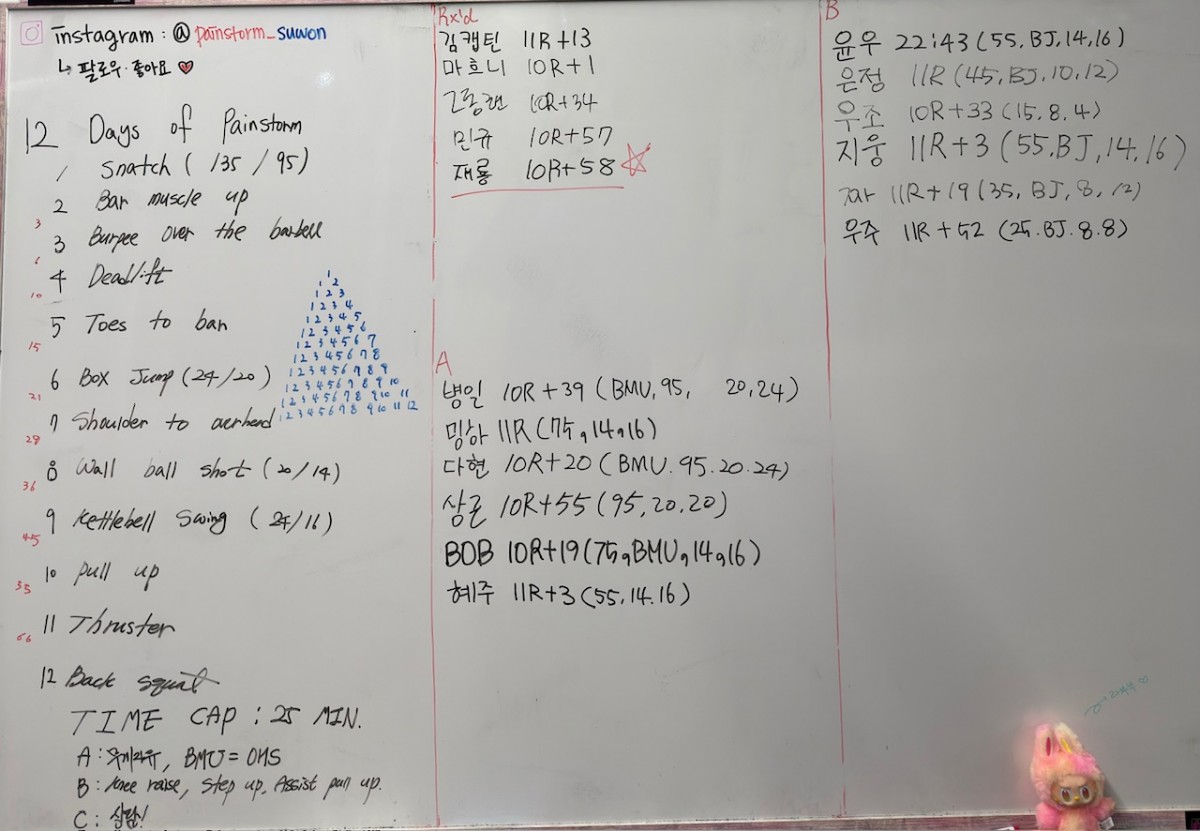 instagram : @painstorm_suwon
↳ 팔로우·좋아요 ♥
12 Days of Painstorm
1 Snatch ( 135 / 95)
2 Bar muscle up
3
3 Burpee over the barbell
6
4 Deadlift
10
5 Toes to bar
15
6 Box Jump (24/20)
21
7 Shoulder to overhead
28
8 Wall ball shot (20/14)
36
9 Kettlebell Swing (24/16)
45
10 pull up
55
11 Thruster
66
12 Back squat
TIME CAP : 25 MIN.
A : 무게자유, BMU = OHS
B : Knee raise, Step up, Assist pull up.
C : 상담!
1
1 2
1 2 3
1 2 3 4
1 2 3 4 5
1 2 3 4 5 6
1 2 3 4 5 6 7
1 2 3 4 5 6 7 8
1 2 3 4 5 6 7 8 9
1 2 3 4 5 6 7 8 9 10
1 2 3 4 5 6 7 8 9 10 11
1 2 3 4 5 6 7 8 9 10 11 12
Rx'd
김캡틴 11R+13
마흐니 10R+1
10R+34
민규 10R+57
재룡 10R+58 ☆
A
병일 10R+39 (BMU, 95, 20, 24)
밍하 11R (75, 14, 16)
다현 10R+20 (BMU. 95. 20. 24)
상론 10R+55 (95, 20, 20)
BOB 10R+19 (75, BMU, 14, 16)
혜주 11R+3 (55. 14. 16)
B
윤우 22:43 (55, BJ, 14, 16)
은정 11R (45, BJ, 10, 12)
우조 10R+33 (15, 8, 4)
지웅 11R+3 (55, BJ, 14, 16)
쟈 11R+19 (35, BJ, 8, 12)
우주 11R+52 (25. BJ. 8. 8)